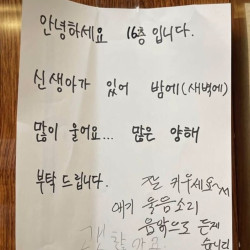 안녕하세요 16층 입니다.
신생아가 있어 밤에(새벽에)
많이 울어요... 많은 양해
부탁 드립니다.
잘 키우세요^^
애기 웃음소리
음악으로 듣게
습니다
괜찮아요